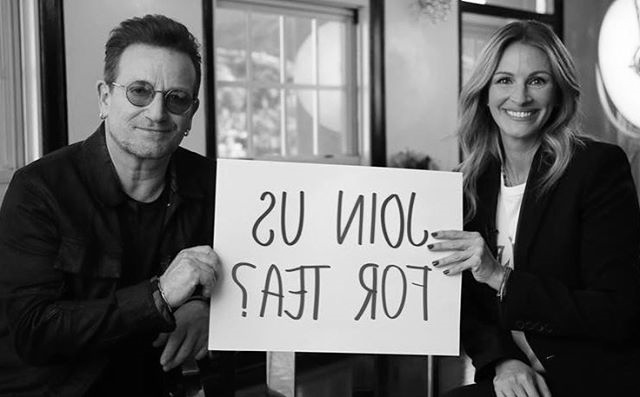 JOIN US
FOR TEA?